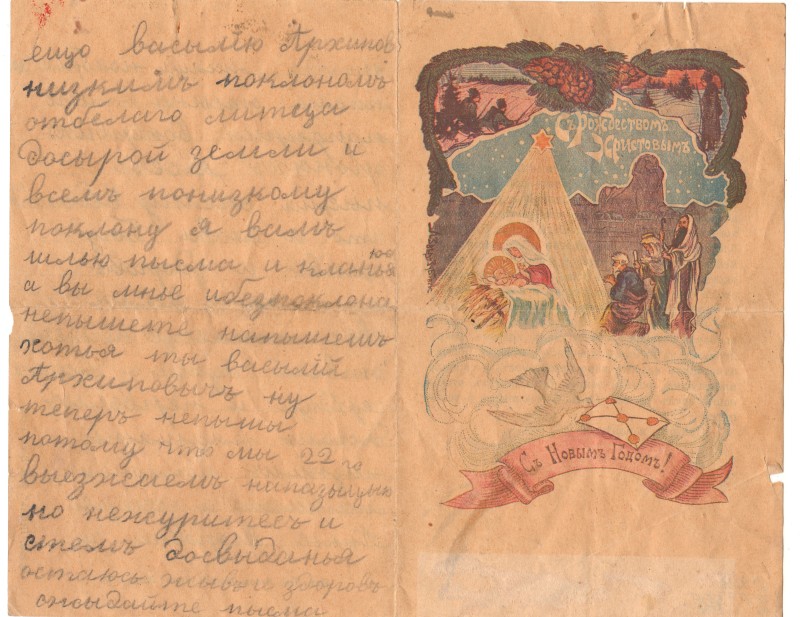 ещо василію Архипов
низкимъ поклономъ
отбелаго литеца
досырой земли и
всемъ понизкому
поклону я вамъ
шлью пысма и кланьюся
а вы мнье ибезпоклона
непышете напышешъ
хотья ты василій
Архиповычъ ну
теперъ непышы
потому что мы 22 го
выезжаемъ напазыцыю
но нежуритесъ и
стемъ досвыданья
остаюсь жывъ и здоровъ
ожыдайте пысма
Съ Рождествомъ
Христовымъ
Съ Новымъ Годомъ!